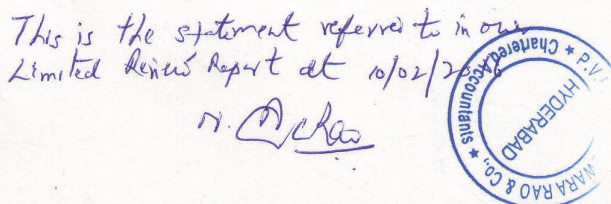 This is the statement referred to in our
Limited Review Report dt 10/02/2016
Chartered Accountants ★ P.V.
HYDERABAD
WARA RAO & CO.,